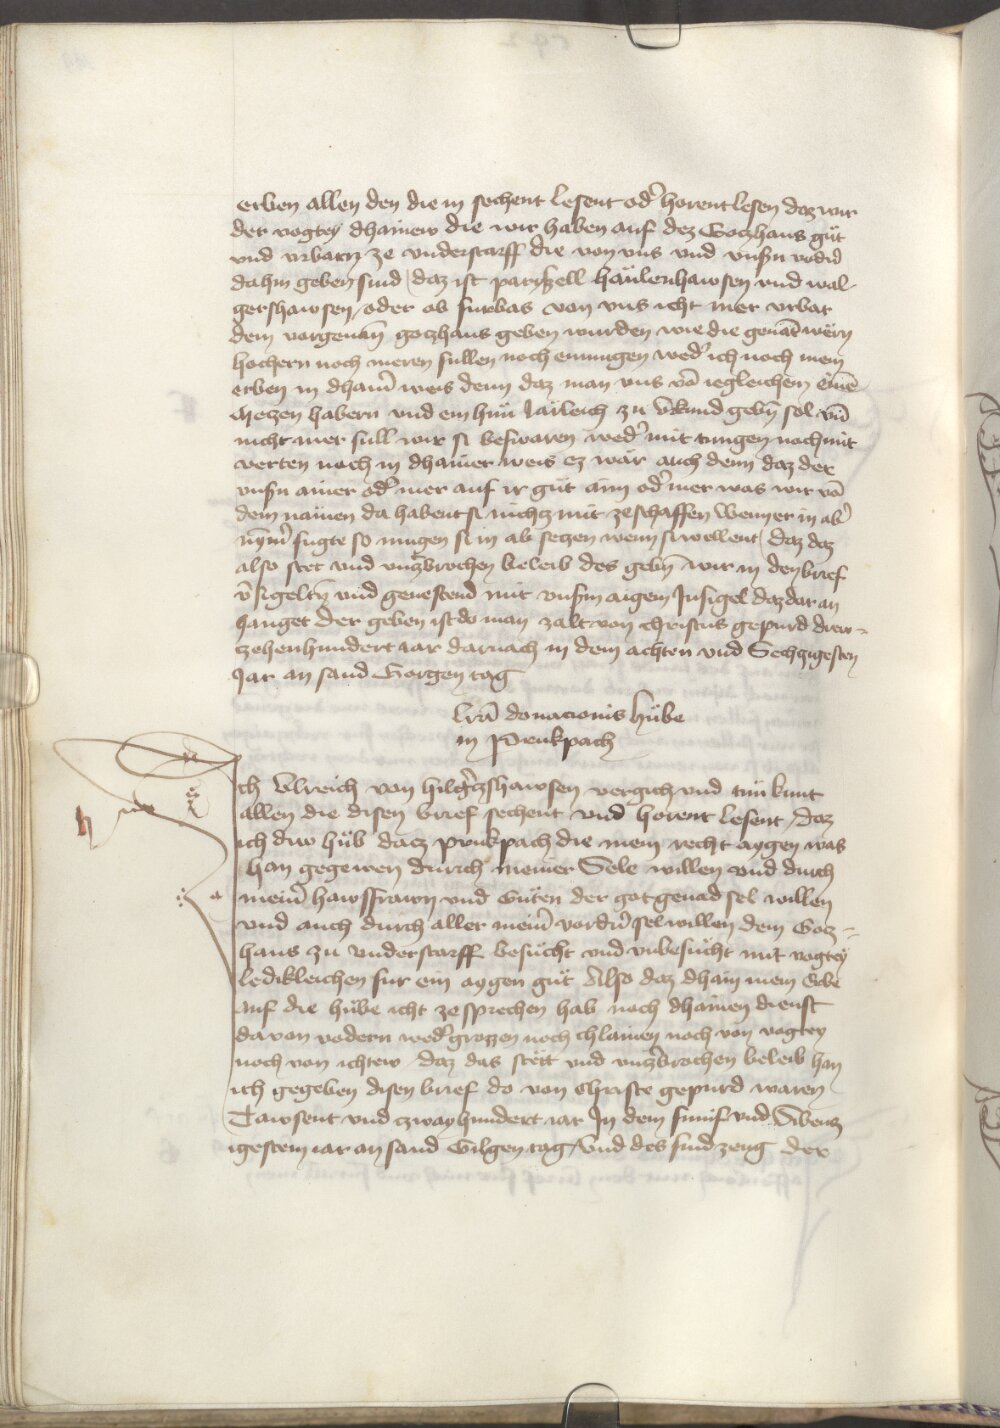 erben allen den die in sechent lesent od̉ horent lesen daz wir
der vogtey dhainew die wir haben auf dez Goczhaus gůt
vnd vrbarn ze vnderstorff die von uns vnd vnsṅ vodṅ
dahin geben sind / daz ist parczell haẅlenhawsen vnd wal-
gershawsen / oder ob furbas von vns icht mer vrbar
dem vorgenan̄ goczhaus geben wurden wie die genāt wern
hochern noch meren sullen noch enmugen wed̉ ich noch mein
erben in dhain̉ weis denn daz man vns vō iegleichem eine
Meczen habern vnd ein hůn Jarleich zu vrkund geb̄n sol vn̄
nicht mer sull wir si beswaren wed̉ mit tungen noch mit
verten noch in dhainer weis ez wär auch denn daz der
vnsṅ ainer od̉ mer auf ir gůt ainn od̉ mer was wir vō
dem nämen da habent si nichcz mit ze schaffen Wenn er in ab̉
nym̉ fugte so mugen si in ab seczen wenn si wellent / daz daz
also stet vnd vnczbrochen beleib des geb̄n wir in den brief
v̉sigeltn̄ vnd geuestend mit vnsm̄ aigem Insigel daz dar an
hanget Der geben ist do man zalt von christus gepurd drew-
zehenhundert iar darnach in dem achten vnd Sechzigesten
Jar an sand Gorgen tag
lrā donacionis hůbe
in Prukpach
Ich Vlreich von hilgẻczhawsen vergich vnd tun kunt
allen die disen brief sechent vnd horent lesent / daz
ich dew hůb dacz prukpach die mein recht aygen was
han gegewen durch meiner Sele willen vnd durch
mein̉ hawsfrawn vnd Guten der got genad sel willen
vnd auch durch aller mein̉ vordn̉ sel willen dem Gocz-
haus zu vnderstorff besůcht vnd vnbesůcht mit vogtey
ledikleichen fur ein aygen gůt Also daz dhain mein Erbe
auf die hůbe icht ze sprechen hab noch dhainen dienst
davon vodern wed̉ grozzen noch chlainen noch von vogtey
noch von ichtew / daz das stett vnd vnczbrochen beleib han
ich gegeben disen brief do von Christe gepurd waren
Tawsent vnd czway hundert iar In dem funf vnd Sibencz
igestem iar an sand Gilgen tag / vnd des sind zeug der